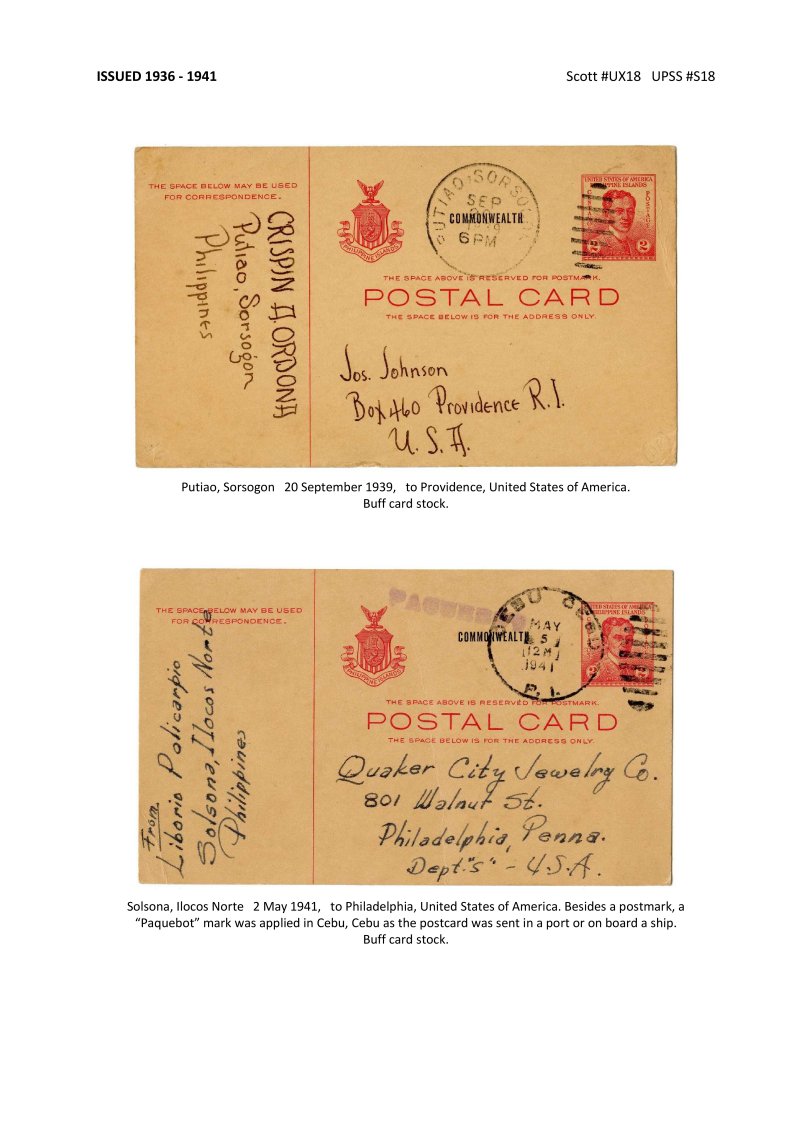 ISSUED 1936 - 1941
Scott #UX18 UPSS #S18
THE SPACE BELOW MAY BE USED
FOR CORRESPONDENCE.
CRISPIN A. ORDONA
Putiao, Sorsogon
Philippines
PUTIAO, SORSOGON
SEP
6 PM
COMMONWEALTH
UNITED STATES OF AMERICA
PHILIPPINE ISLANDS
POSTAGE
2 2
PHILIPPINE ISLANDS
THE SPACE ABOVE IS RESERVED FOR POSTMARK.
POSTAL CARD
THE SPACE BELOW IS FOR THE ADDRESS ONLY.
Jos. Johnson
Box 460 Providence R.I.
U. S. A.
Putiao, Sorsogon 20 September 1939, to Providence, United States of America.
Buff card stock.
THE SPACE BELOW MAY BE USED
FOR CORRESPONDENCE.
From
Liborio Policarpio
Solsona, Ilocos Norte
Philippines
PAQUEBOT
COMMONWEALTH
CEBU CEBU
MAY
5
12M
1941
P. I.
UNITED STATES OF AMERICA
PHILIPPINE ISLANDS
2
PHILIPPINE ISLANDS
THE SPACE ABOVE IS RESERVED FOR POSTMARK.
POSTAL CARD
THE SPACE BELOW IS FOR THE ADDRESS ONLY.
Quaker City Jewelry Co.
801 Walnut St.
Philadelphia, Penna.
Dept. "S" - U.S.A.
Solsona, Ilocos Norte 2 May 1941, to Philadelphia, United States of America. Besides a postmark, a
“Paquebot” mark was applied in Cebu, Cebu as the postcard was sent in a port or on board a ship.
Buff card stock.